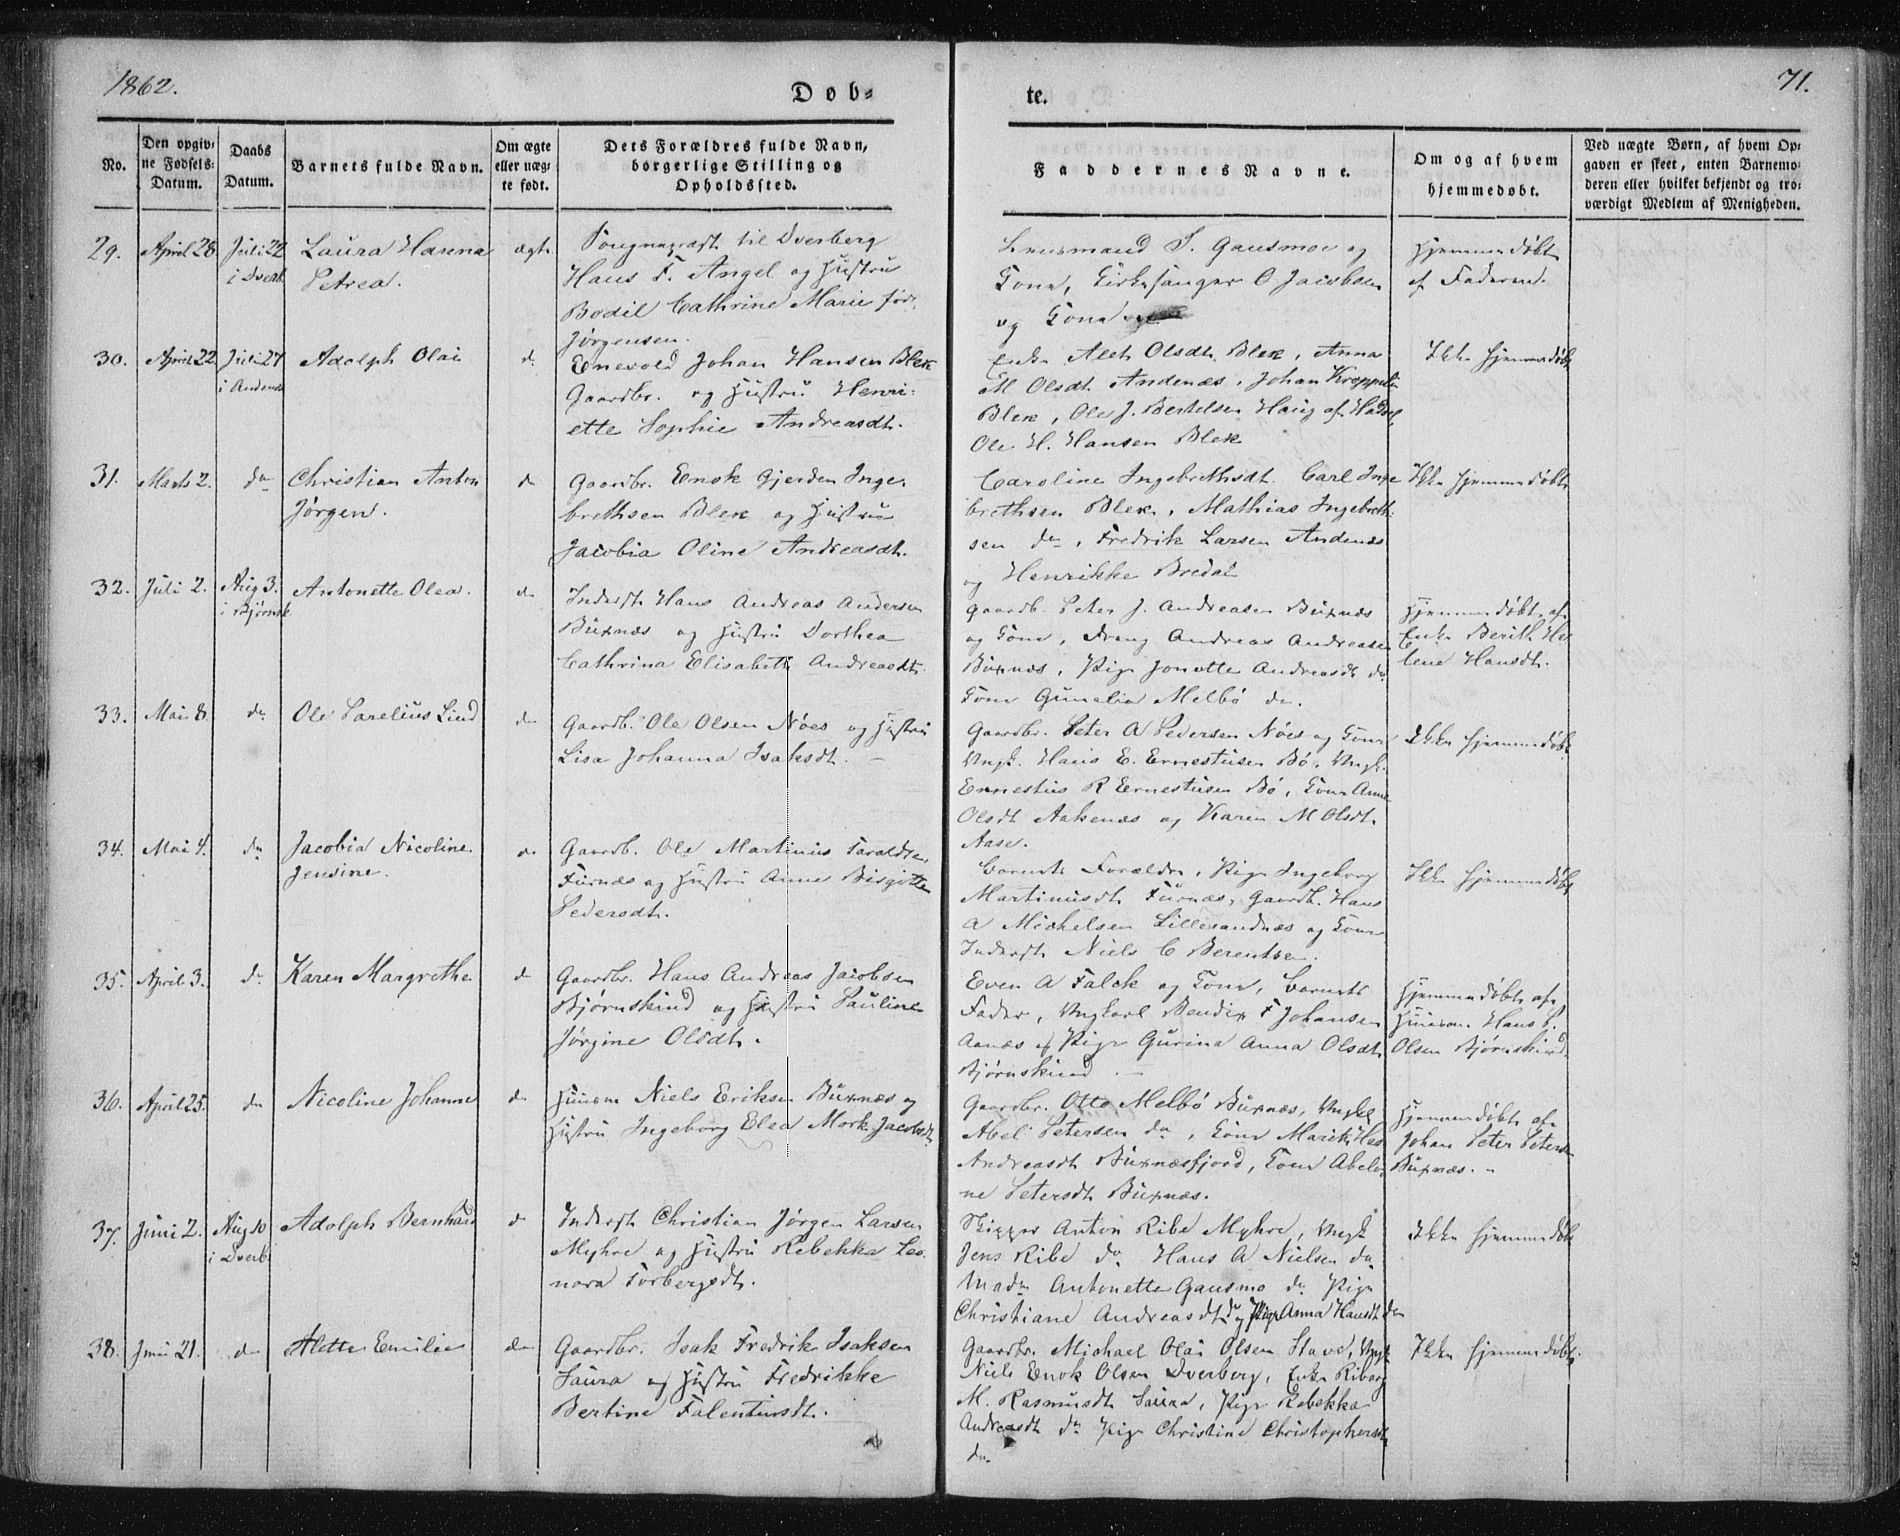 1862.
Døb=
te.
71.
No.
Den opgiv=
ne Fødsels=
Datum.
Daabs
Datum.
Barnets fulde Navn.
Om ægte
eller uæg=
te født.
Dets Forældres fulde Navn,
borgerlige Stilling og
Opholdssted.
Faddernes Navne.
Om og af hvem
hjemmedøbt.
Ved uægte Børn, af hvem Op=
gaven er skeet, enten Barnemo=
deren eller hvilket bekjendt og tro=
værdigt Medlem af Menigheden.
29. April 28 Juli 22
i Dverb.
Laura Hanna
Petrea.
ægt.
Sognepræst til Dverberg
Hans F. Angel og Hustru
Bodil Cathrine Marie fød.
Jørgensen.
Lensmand S. Gausmoe og
Kone, Kirkesanger O Jacobsen
og Kone
Hjemmedøbt
af Faderen.
30. April 22 Juli 27
i Andenæs
Adolph Olai
do
Enevold Johan Hansen Blek
Gaardbr. og Hustru Henri=
ette Sophie Andreasdt.
Enke Alet Olsdt. Blek, Anna
M Olsdt Andenæs, Johan Kroppelin
Blek, Ole J. Bertelsen Haug af Hadsel,
Ole H. Hansen Blek
Ikke hjemmedøbt
31. Marts 2. do
Christian Anton
Jørgen.
do
Gaardbr. Enok Gjerden Inge=
brethsen Blek og Hustru
Jacobia Oline Andreasdt.
Caroline Ingebrethsdt. Carl Inge
brethsen Blek, Mathias Ingebreth=
sen do, Fredrik Larsen Andenæs
og Henrikke Bredal
Ikke hjemmedøbt
32. Juli 2. Aug 3.
i Bjørnsk.
Antonette Olea.
do
Inderst Hans Andreas Andersen
Buxnæs og Hustru Dorthea
Cathrina Elisabeth Andreasdt.
Gaardb. Peter J. Andreasen Buxnæs
og Kone, Dreng Andreas Andreasen
Buxnæs, Pige Jonette Andreasdt do
Kone Gunelia Melbø do.
Hjemmedøbt af
Enke Berith He
lene Hansdt.
33. Mai 8. do
Ole Sarelius Lind
do
Gaardb. Ole Olsen Nøes og Hustru
Lisa Johanna Isaksdt. –
Gaardbr. Peter A Pedersen Nøes og Kone
Ungk. Hans E. Ernestusen Bø, Ungk.
Ernestius R Ernestusen Bø, Kone Anne
Olsdt Aakenæs og Karen M Olsdt.
Aase.
Ikke hjemmedøbt
34. Mai 4. do
Jacobia Nicoline
Jensine.
do
Gaardb. Ole Martinus Taraldsen
Furnæs og Hustru Anne Birgitte
Pedersdt.
Barnets Forældre, Pige Ingeborg
Martinusdt Furnæs, Gaardb. Hans
A Michelsen Lillesandnæs og Kone
Inderst Niels C Berentsen.
Ikke hjemmedøbt
35. April 3. do
Karen Margrethe
do
Gaardbr. Hans Andreas Jacobsen
Bjørnskind og Hustru Pauline
Jørgine Olsdt.
Even A Falck og Kone, Barnets
Fader, Ungkarl Bendix F Johansen
Aanæs og Pige Gurina Anna Olsdt.
Bjørnskind. –
Hjemmedøbt af
Huusm. Hans P.
Olsen Bjørnskind.
36. April 25. do
Nicoline Johanne
do
Huusm Niels Eriksen Buxnæs og
Hustru Ingeborg Elea Mork Jacobsdt.
Gaardbr. Otto Melbø Buxnæs, Ungkl
Abel Petersen do, Kone Marith Has
Andreasdt Buxnæsfjord, Kone Abelo
ne Petersdt. Buxnæs.
Hjemmedøbt af
Johan Peter Petersen
Buxnæs. –
37. Juni 2. Aug 10
i Dverb.
Adolph Bernhard
do
Inderst Christian Jørgen Larsen
Myhre og Hustru Rebekka Leo
nora Torbergsdt.
Skipper Anton Ribe Myhre, Ungk
Jens Ribe do Hans A Nielsen do
Mad. Antonette Gausmo do Pige
Christiane Andreasdt do og Pige Anna Hansdt do
Ikke hjemmedøbt
38. Juni 21. do
Alette Emilie
do
Gaardbr. Isak Fredrik Isaksen
Saura og Hustru Fredrikke
Bertine Falentinsdt.
Gaardbr. Michael Olai Olsen Stave, Ungk
Niels Enok Olsen Dverberg, Enke Riborg
M. Rasmusdt Saura, Pige Rebekka
Andreasdt do Pige Christine Christophersdt
do.
Ikke hjemmedøbt.